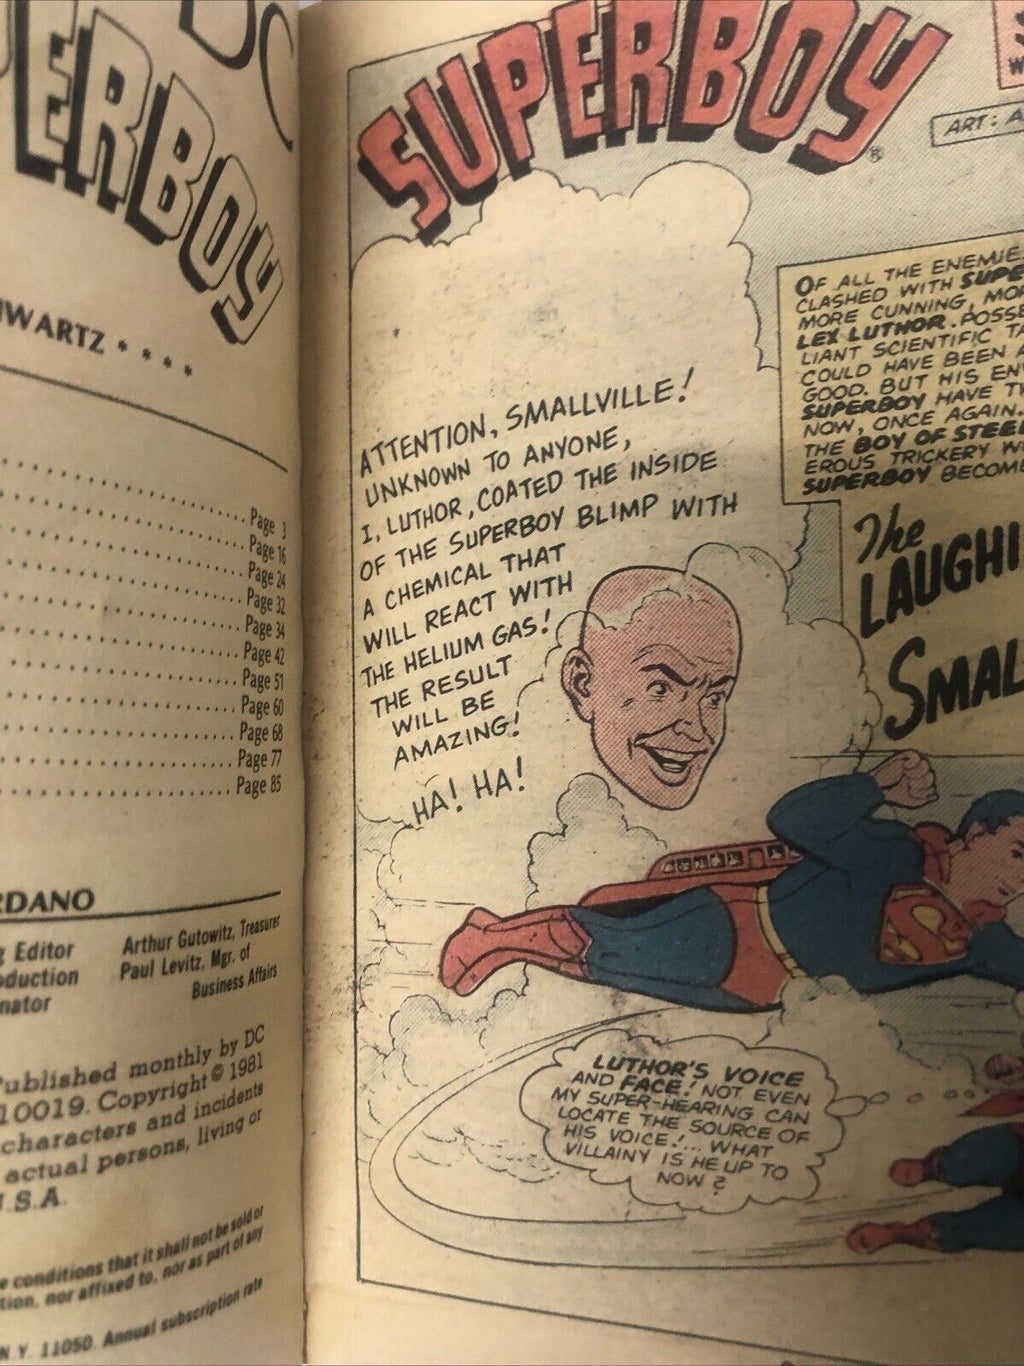 SUPERBOY
HWARTZ • • • •
Page 3
Page 16
Page 24
Page 32
Page 34
Page 42
Page 51
Page 60
Page 68
Page 77
Page 85
Editor
Arthur Gutowitz, Treasurer
Paul Levitz, Mgr. of
Business Affairs
Published monthly by DC
10019. Copyright © 1981
characters and incidents
actual persons, living or
U.S.A.
conditions that it shall not be sold or
nor affixed to, nor as part of any
N.Y. 11050. Annual subscription rate
SUPERBOY®
ART: A
OF ALL THE ENEMIE
CLASHED WITH SUPE
MORE CUNNING, MOR
LEX LUTHOR. POSSE
LIANT SCIENTIFIC TA
COULD HAVE BEEN A
GOOD. BUT HIS ENV
SUPERBOY HAVE TW
NOW, ONCE AGAIN.
THE BOY OF STEEL
EROUS TRICKERY W
SUPERBOY BECOME
The
LAUGHI
SMAL
ATTENTION, SMALLVILLE!
UNKNOWN TO ANYONE,
I, LUTHOR, COATED THE INSIDE
OF THE SUPERBOY BLIMP WITH
A CHEMICAL THAT
WILL REACT WITH
THE HELIUM GAS!
THE RESULT
WILL BE
AMAZING!
HA! HA!
LUTHOR'S VOICE
AND FACE! NOT EVEN
MY SUPER-HEARING CAN
LOCATE THE SOURCE OF
HIS VOICE!... WHAT
VILLAINY IS HE UP TO
NOW?